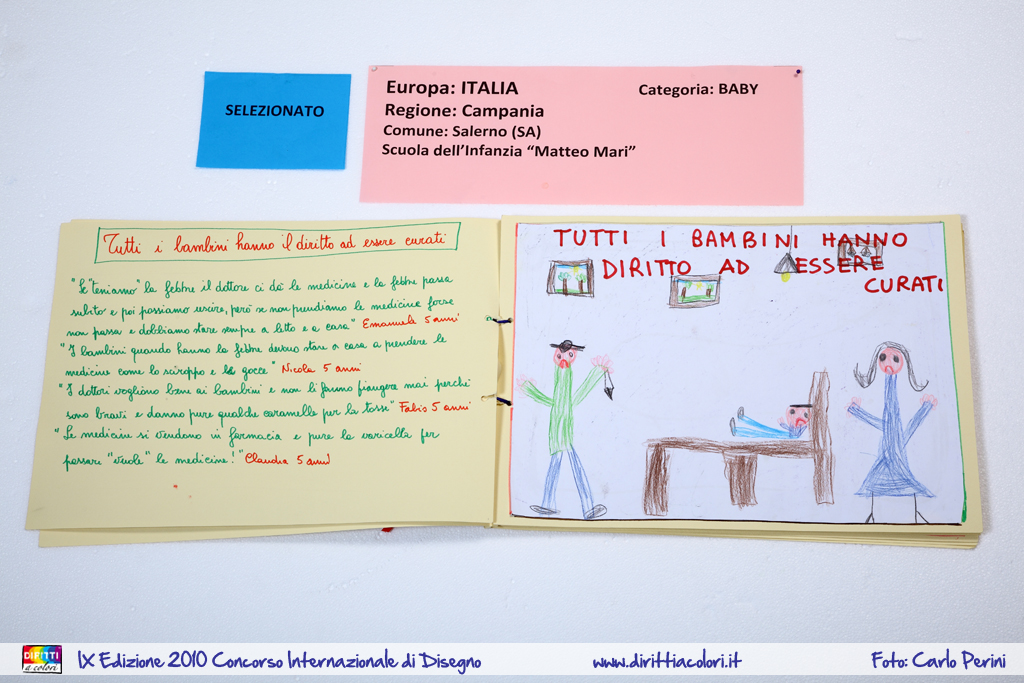 SELEZIONATO
Europa: ITALIA
Categoria: BABY
Regione: Campania
Comune: Salerno (SA)
Scuola dell'Infanzia "Matteo Mari"
Tutti i bambini hanno il diritto ad essere curati
"Se "teniamo" la febbre il dottore ci dà le medicine e la febbre passa
subito e poi possiamo uscire, però se non prendiamo le medicine forse
non passa e dobbiamo stare sempre a letto e a casa" Emanuela 5 anni
"I bambini quando hanno la febbre devono stare a casa a prendere le
medicine come lo sciroppo e le gocce" Nicola 5 anni
"I dottori vogliono bene ai bambini e non li fanno piangere mai perché
sono bravi e danno pure qualche caramella per la tosse" Fabio 5 anni
"Le medicine si vendono in farmacia e pure la varicella per
passare "vuole" le medicine!" Claudia 5 anni
TUTTI I BAMBINI HANNO
DIRITTO AD ESSERE
CURATI
DIRITTI
a colori
IX Edizione 2010 Concorso Internazionale di Disegno
www.dirittiacolori.it
Foto: Carlo Perini